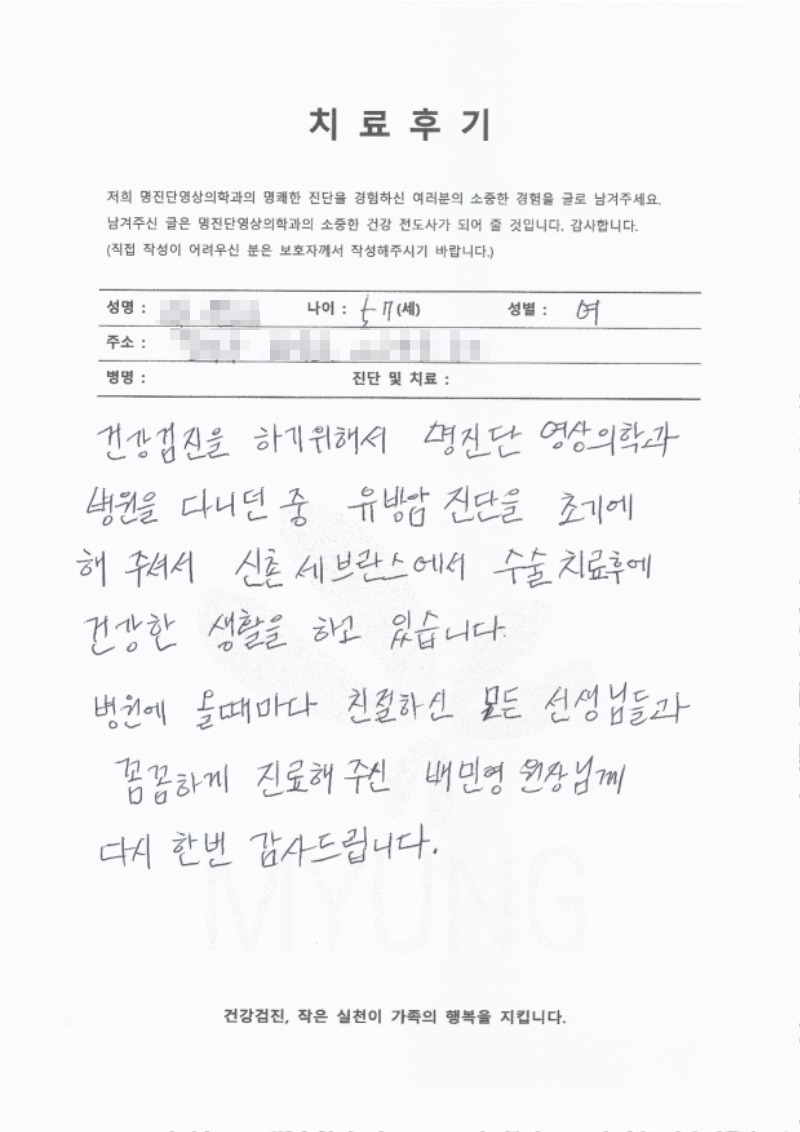 치료후기
저희 명진단영상의학과의 명쾌한 진단을 경험하신 여러분의 소중한 경험을 글로 남겨주세요.
남겨주신 글은 명진단영상의학과의 소중한 건강 전도사가 되어 줄 것입니다. 감사합니다.
(직접 작성이 어려우신 분은 보호자께서 작성해주시기 바랍니다.)
성명 : 나이 : 57(세) 성별 : 여
주소 :
병명 : 진단 및 치료 :
건강검진을 하기위해서 명진단 영상의학과
병원을 다니던 중 유방암 진단을 초기에
해 주셔서 신촌 세브란스에서 수술 치료후에
건강한 생활을 하고 있습니다.
병원에 올때마다 친절하신 모든 선생님들과
꼼꼼하게 진료해 주신 배민영 원장님께
다시 한번 감사드립니다.
MYUNG
건강검진, 작은 실천이 가족의 행복을 지킵니다.